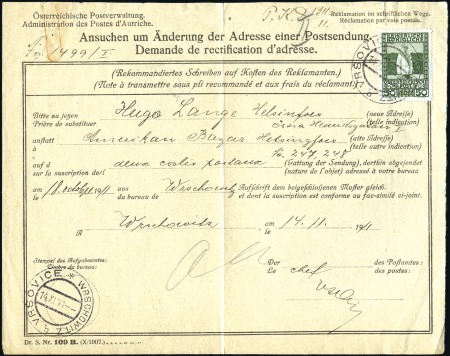 Österreichische Postverwaltung.
Administration des Postes d'Autriche.
Reklamation im schriftlichen Wege.
Réclamation par voie postale.
Ansuchen um Änderung der Adresse einer Postsendung.
Demande de rectification d'adresse.
(Rekommandiertes Schreiben auf Kosten des Reklamanten.)
(Note à transmettre sous pli recommandé et aux frais du réclamant.)
Bitte zu setzen Hugo Lange Helsingfors (neue Adresse)
Prière de substituer (telle indication)
anstatt Amerikan Bazar Helsingfors (alte Adresse)
à (telle autre indication)
auf No. 247, 248 (Gattung der Sendung), dorthin abgesendet
à la suscription de deux colis postaux (nature de l'objet) adressé à votre bureau
am 18. octobre 1911 aus Wrschowitz Aufschrift dem beigeschlossenen Muster gleich.
le du bureau de et dont la suscription est conforme au fac-similé ci-joint.
A Wrschowitz am le 14. 11. 1911
Stempel des Aufgabeamtes:
Timbre du bureau:
Der des Postamtes:
Le chef des postes:
VRŠOVICE * WRSCHOWITZ
14.XI.11
Dr. S. Nr. 109 B. (X/1907.)